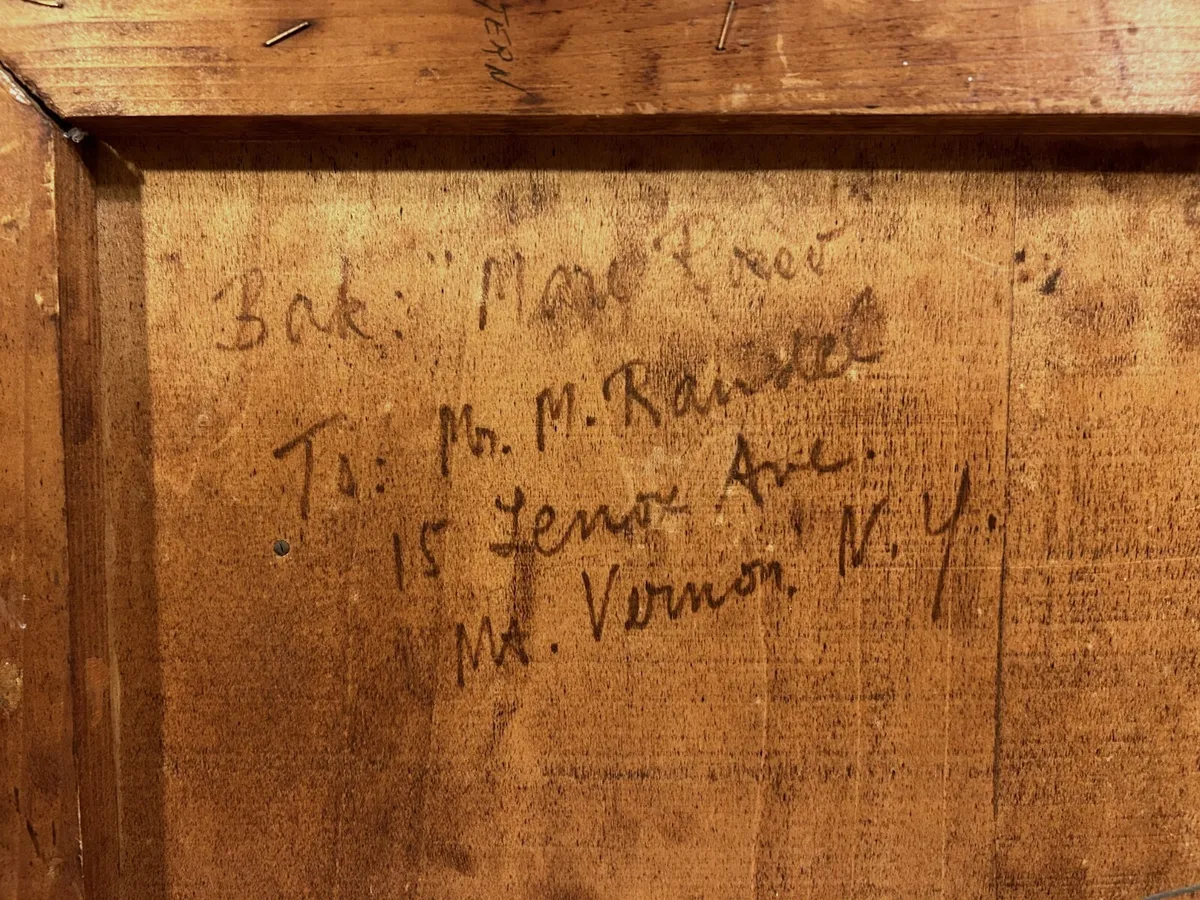 TERN
Bak: "
To: Mr. M. Randel
15 Lenox Ave.
Mt. Vernon, N.Y.